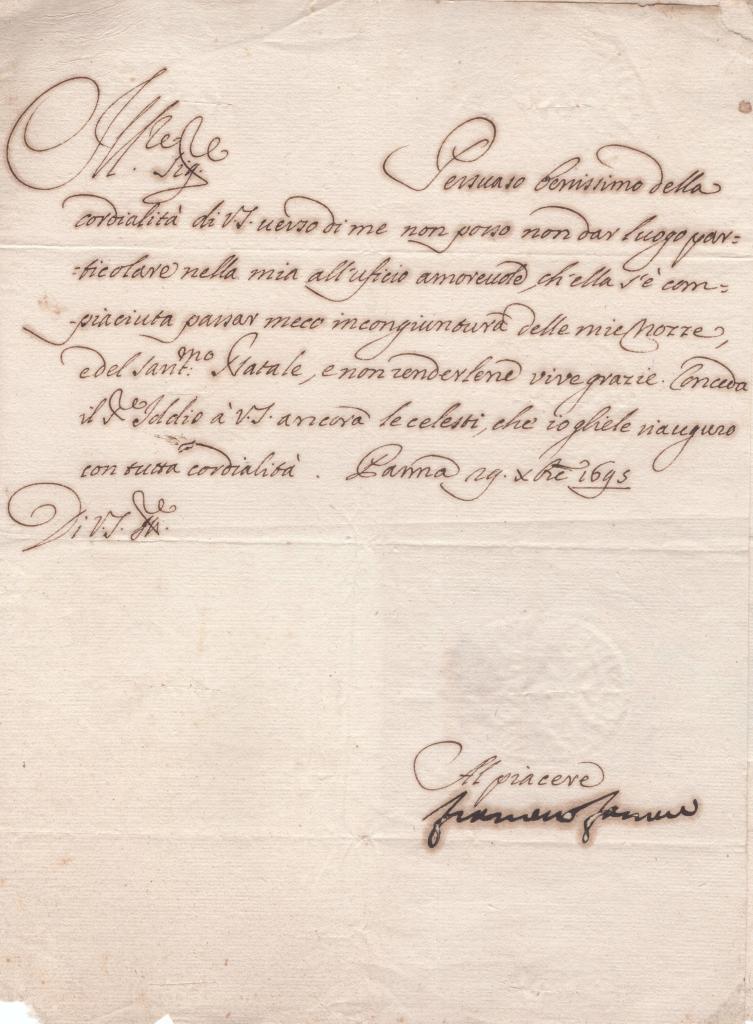 Ill.re Sig.re Persuaso benissimo della
cordialità di V.S. verso di me non posso non dar luogo par=
=ticolare nella mia all'uficio amorevole, ch'ella s'è com=
=piaciuta passar meco in congiuntura delle mie Nozze,
e del Sant.mo Natale, e non renderlene vive grazie. Conceda
il Iddio à V.S. ancora le celesti, che io gliele riauguro
con tutta cordialità. Parma 29. Xbre 1695
Di V.S.
Al piacere
Francesco Farnese